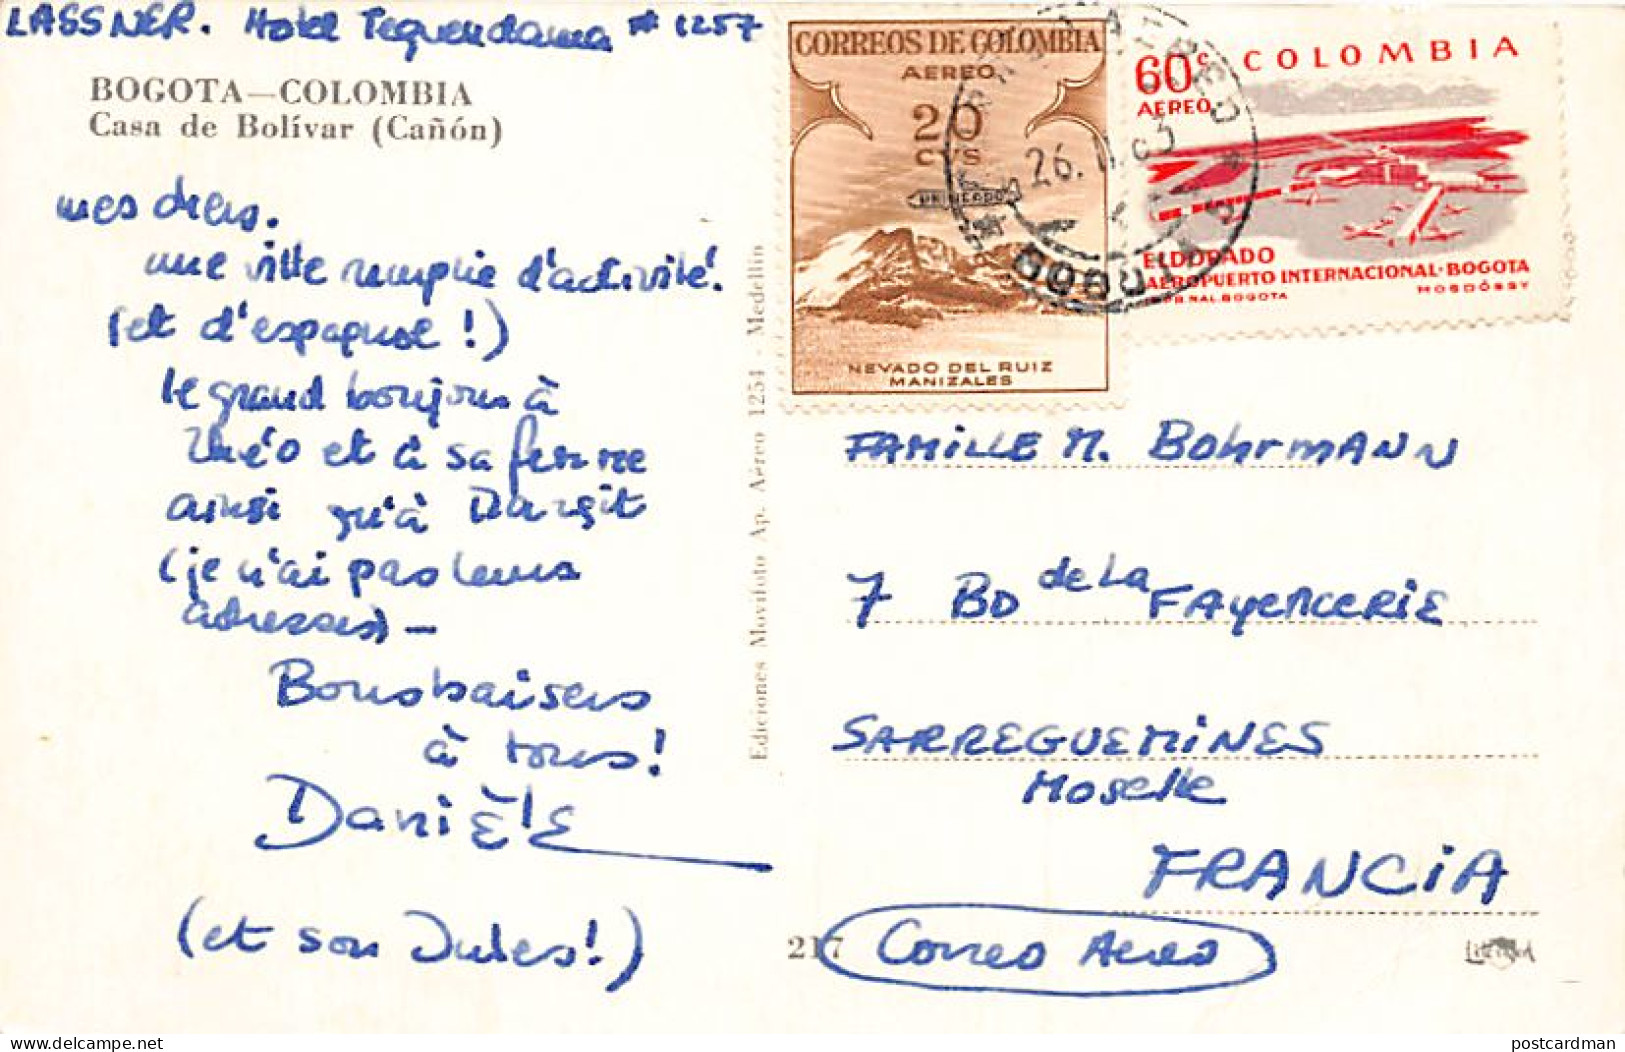 LASSNER. Hotel Tequendama # 1257
BOGOTA—COLOMBIA
Casa de Bolívar (Cañón)
mes chers.
une ville remplie d'activité!
(et d'espagnol !)
le grand bonjour à
Théo et à sa femme
ainsi qu'à Margit
(je n'ai pas leurs
adresses) —
Bons baisers
à tous!
Danièle
(et son Jules!)
Ediciones Movifoto Ap. Aéreo 1251 - Medellin
CORREOS DE COLOMBIA
AEREO
20
CVS
NEVADO DEL RUIZ
MANIZALES
60c COLOMBIA
AEREO
ELDORADO
AEROPUERTO INTERNACIONAL·BOGOTA
MOSDÓSSY
BOGOTA
26.
FAMILLE M. BOHRMANN
7 BD de la FAYENCERIE
SARREGUEMINES
Moselle
FRANCIA
217
Correo Aereo
www.delcampe.net
postcardman